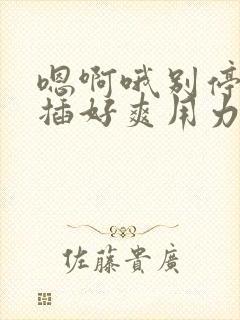 嗯啊哦别停
插好爽用力
佐藤貴廣